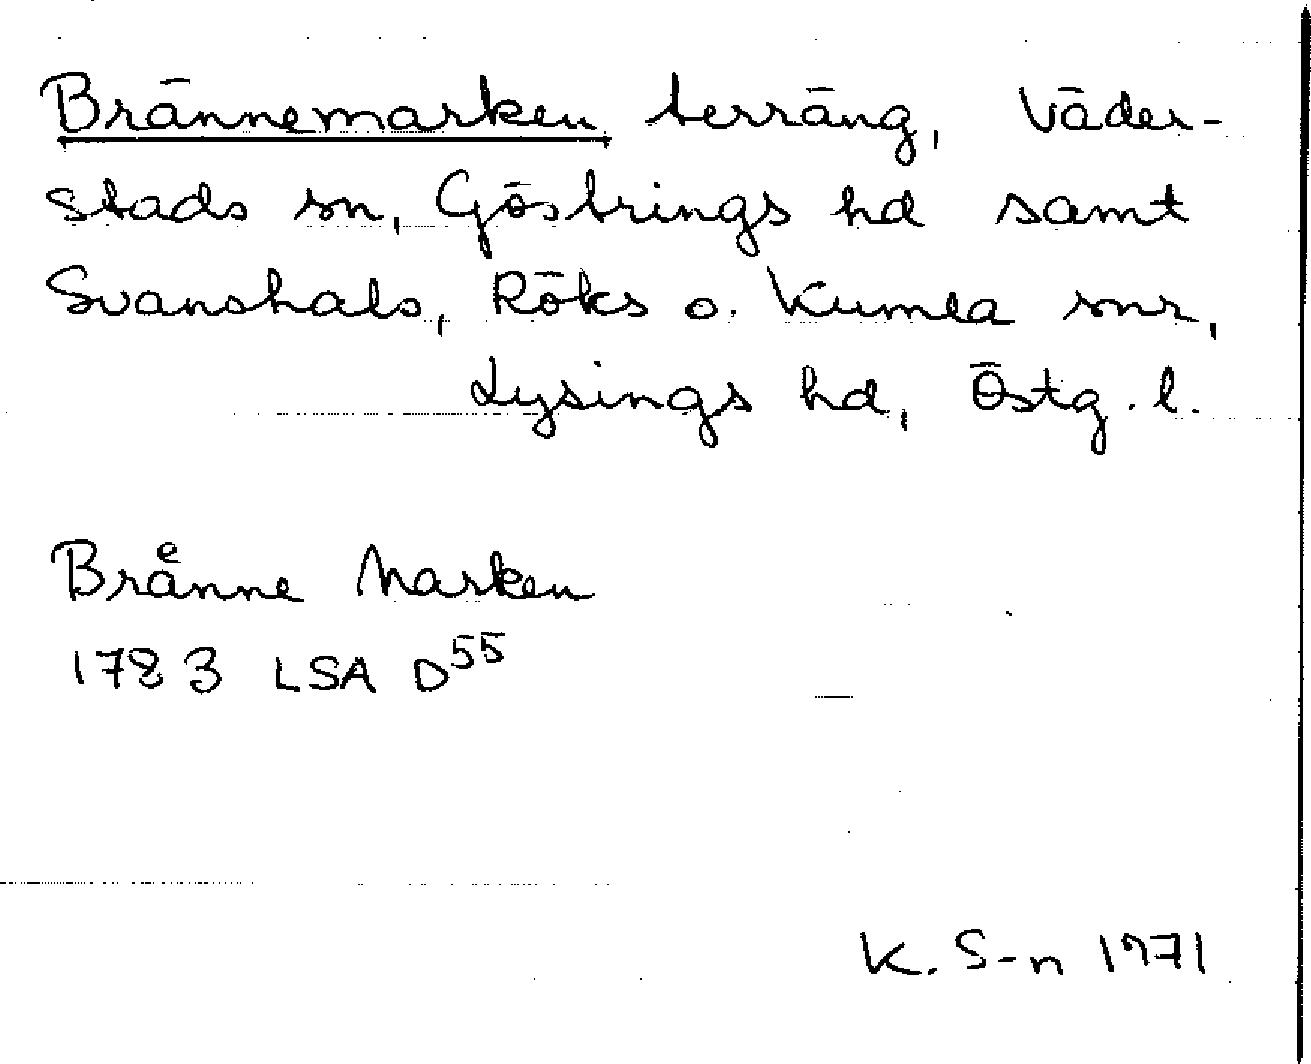 Brännemarken terräng, Väder-
stads sn, Göstrings hd samt
Svanshals, Röks o. Kumla snr,
Lysings hd, Östg. l.
Brånne Marken
1783 LSA D55
K. S-n 1971